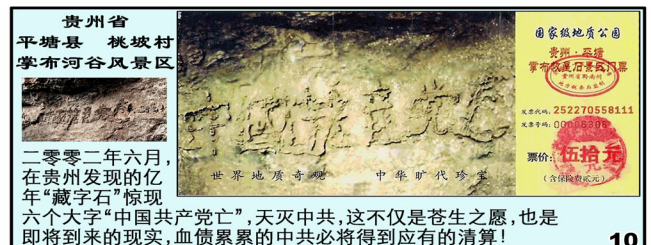 贵州省
平塘县 桃坡村
掌布河谷风景区
中國共产党亡
世界地质奇观 中华旷代珍宝
国家级地质公园
贵州·平塘
掌布
景区门票
发票代码: 252270558111
发票号码:
票价: 伍拾元
(含保险费贰元)
二零零二年六月,
在贵州发现的亿
年“藏字石”惊现
六个大字“中国共产党亡”,天灭中共,这不仅是苍生之愿,也是
即将到来的现实,血债累累的中共必将得到应有的清算!
10